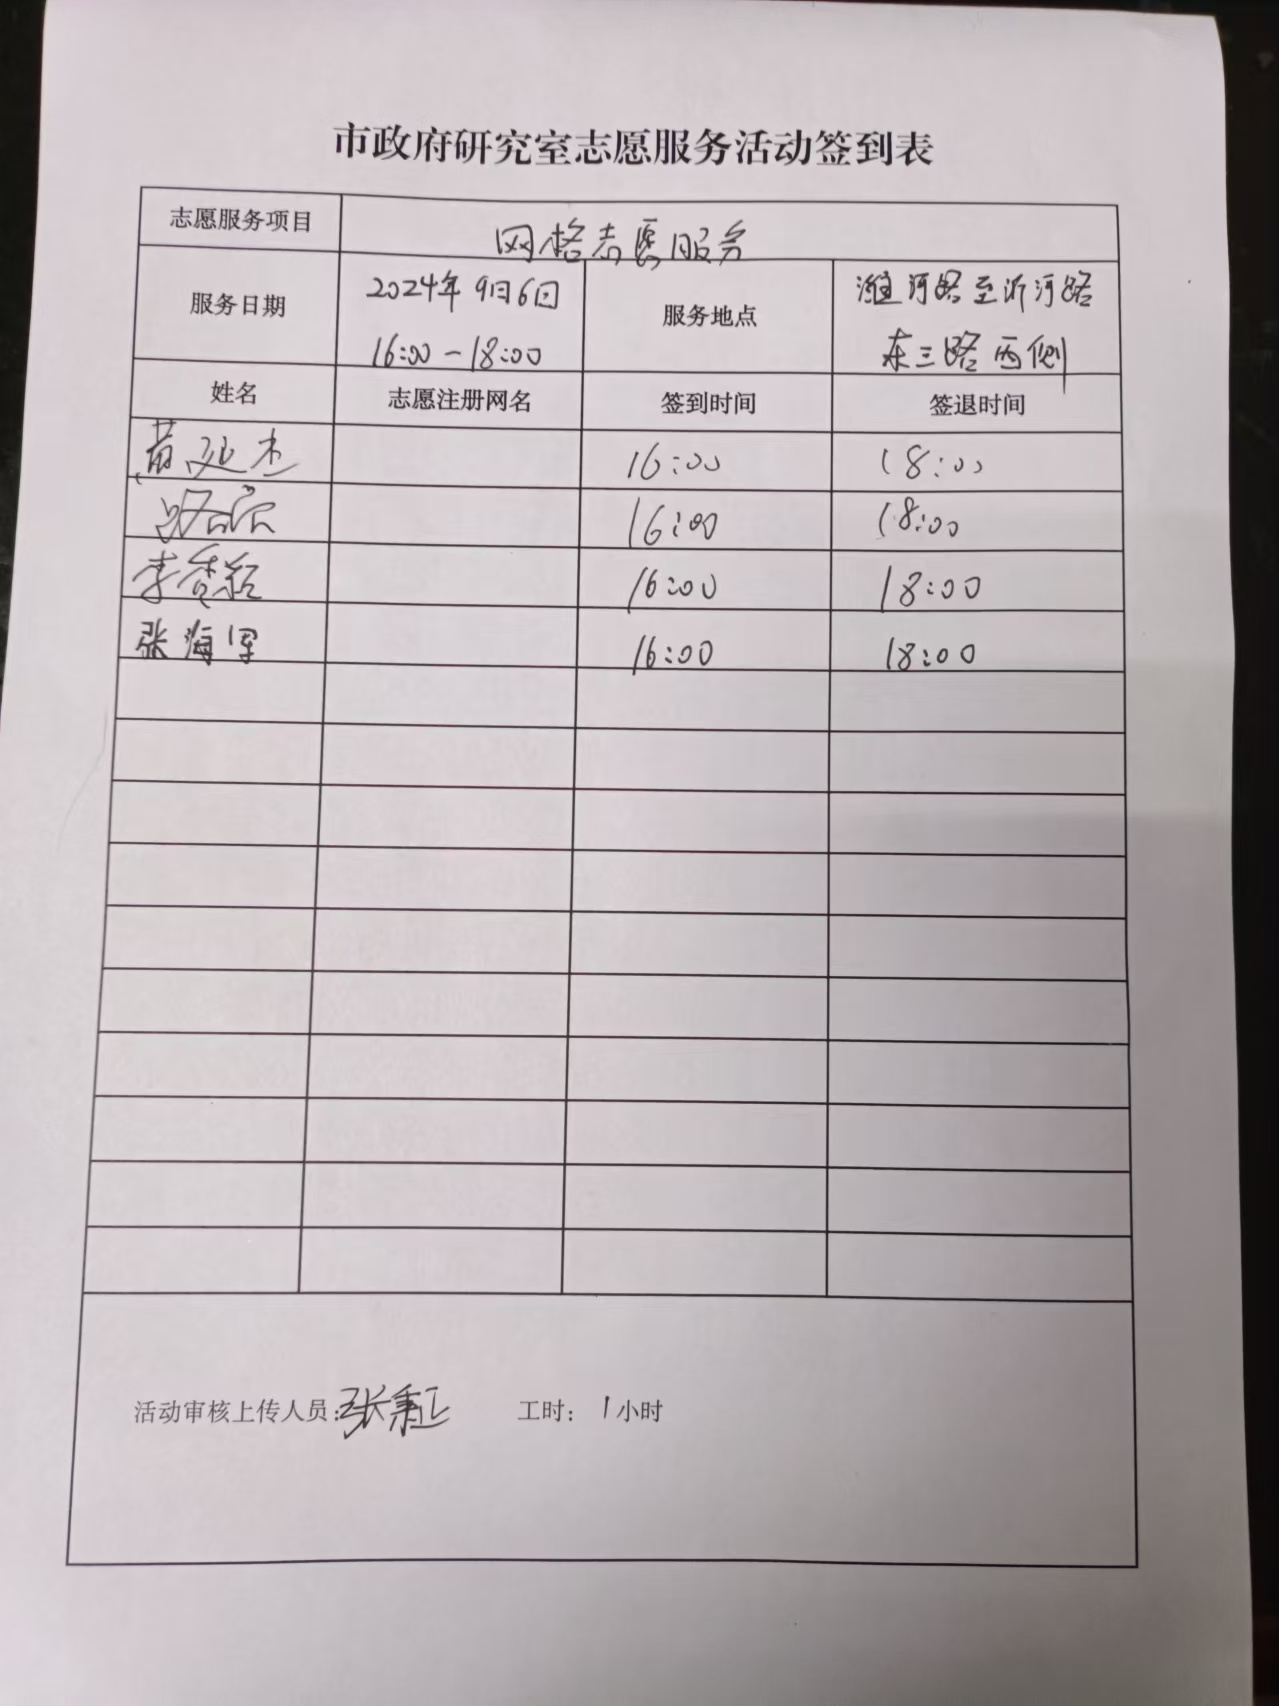 市政府研究室志愿服务活动签到表
志愿服务项目 网格志愿服务
服务日期 2024年9月6日 16:00-18:00 服务地点 潍河路至沂河路 东三路两侧
姓名 志愿注册网名 签到时间 签退时间
16:00 18:00
16:00 18:00
李 16:00 18:00
张海军 16:00 18:00
活动审核上传人员:张 工时: 1小时